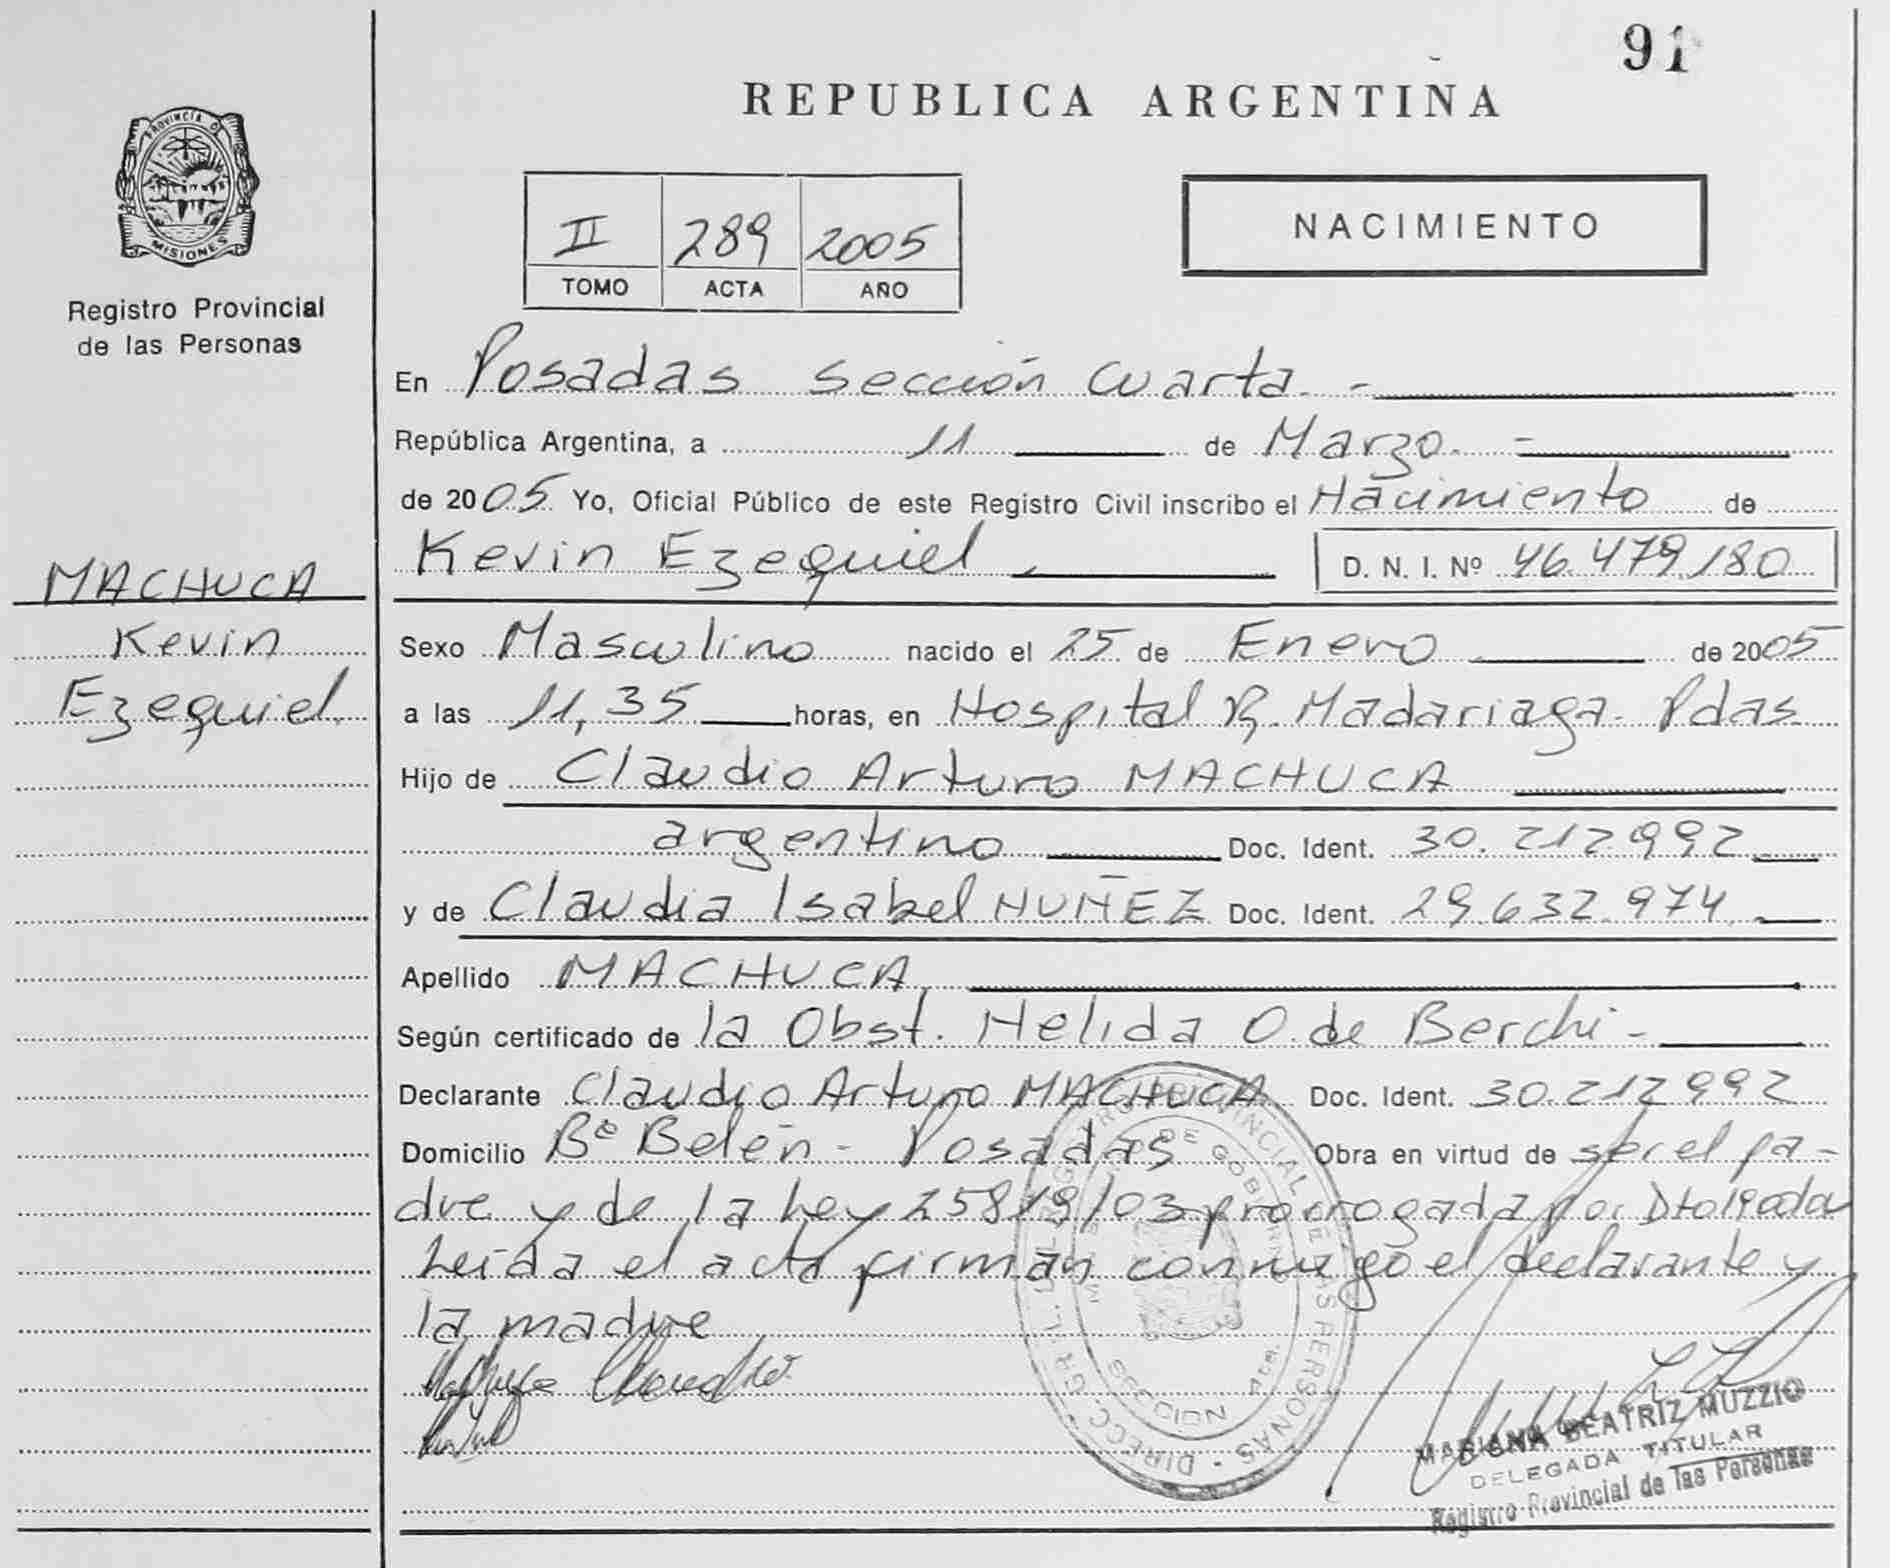 91
REPUBLICA ARGENTINA
PROVINCIA D
MISIONES
Registro Provincial
de las Personas
II 289 2005
TOMO ACTA AÑO
NACIMIENTO
En Posadas sección Cuarta. -
República Argentina, a 11 de Marzo. -
de 2005 Yo, Oficial Público de este Registro Civil inscribo el Nacimiento de
Kevin Ezequiel D. N. I. Nº 46.479.180
MACHUCA
Kevin
Ezequiel
Sexo Masculino nacido el 25 de Enero de 2005
a las 11,35 horas, en Hospital R. Madariaga - Pdas
Hijo de Claudio Arturo MACHUCA
argentino Doc. Ident. 30.212.992
y de Claudia Isabel NUÑEZ Doc. Ident. 29.632.974
Apellido MACHUCA
Según certificado de la Obst. Nelida O. de Berchi -
Declarante Claudio Arturo MACHUCA Doc. Ident. 30.212.992
Domicilio Bº Belén - Posadas Obra en virtud de ser el pa-
dre y de la Ley 25819/03 prorrogada por
Leída el acta firman conmigo el declarante y
la madre
Machuca Claudio
DIRECC. GRAL. DEL REGISTRO PROVINCIAL DE LAS PERSONAS
DE GOBIERNO
SECCION 4ta.
MARIANA BEATRIZ MUZZIO
DELEGADA TITULAR
Registro Provincial de las Personas